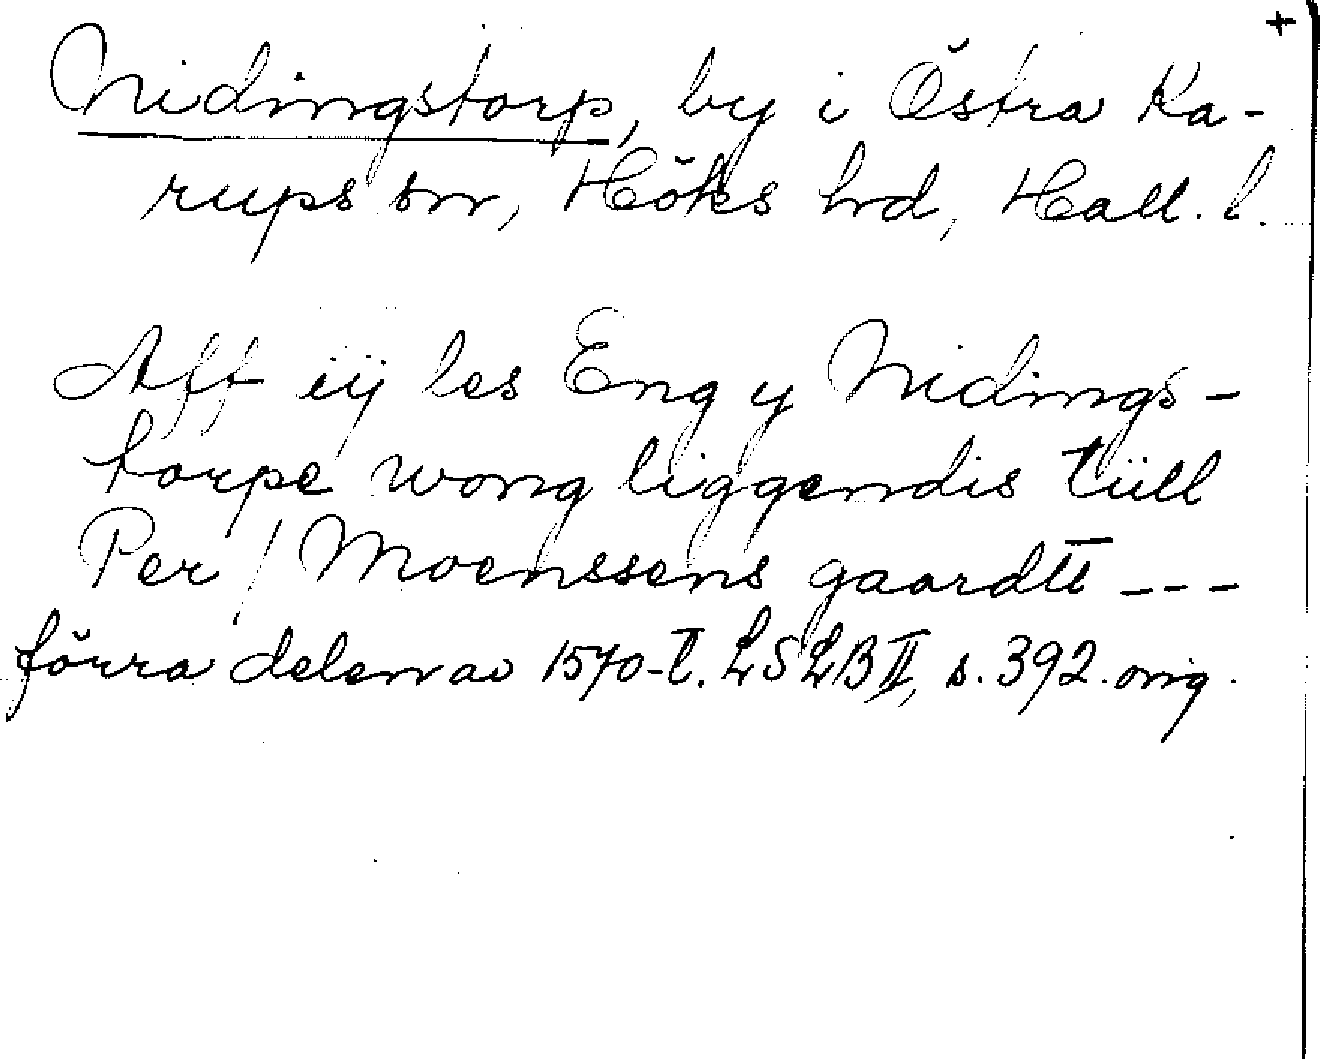 +
Nidingstorp, by i Östra Ka-
rups sn, Höks hrd, Hall. l.
Aff iij les Eng y Nidings-
torpe wong liggendis tüll
Per / Moenssens gaardtt ---
förra delen av 1570-t. LSLB II, s. 392. orig.